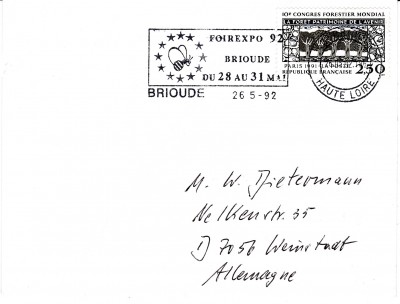 10e CONGRES FORESTIER MONDIAL
LA FORET PATRIMOINE DE L'AVENIR
PARIS 1991 LA POSTE
REPUBLIQUE FRANÇAISE 2,50
FOIREXPO 92
BRIOUDE
DU 28 AU 31 MAI
BRIOUDE 26-5-92
HAUTE LOIRE
M. W. Dietermann
Nelkenstr. 35
D 7056 Weinstadt
Allemagne